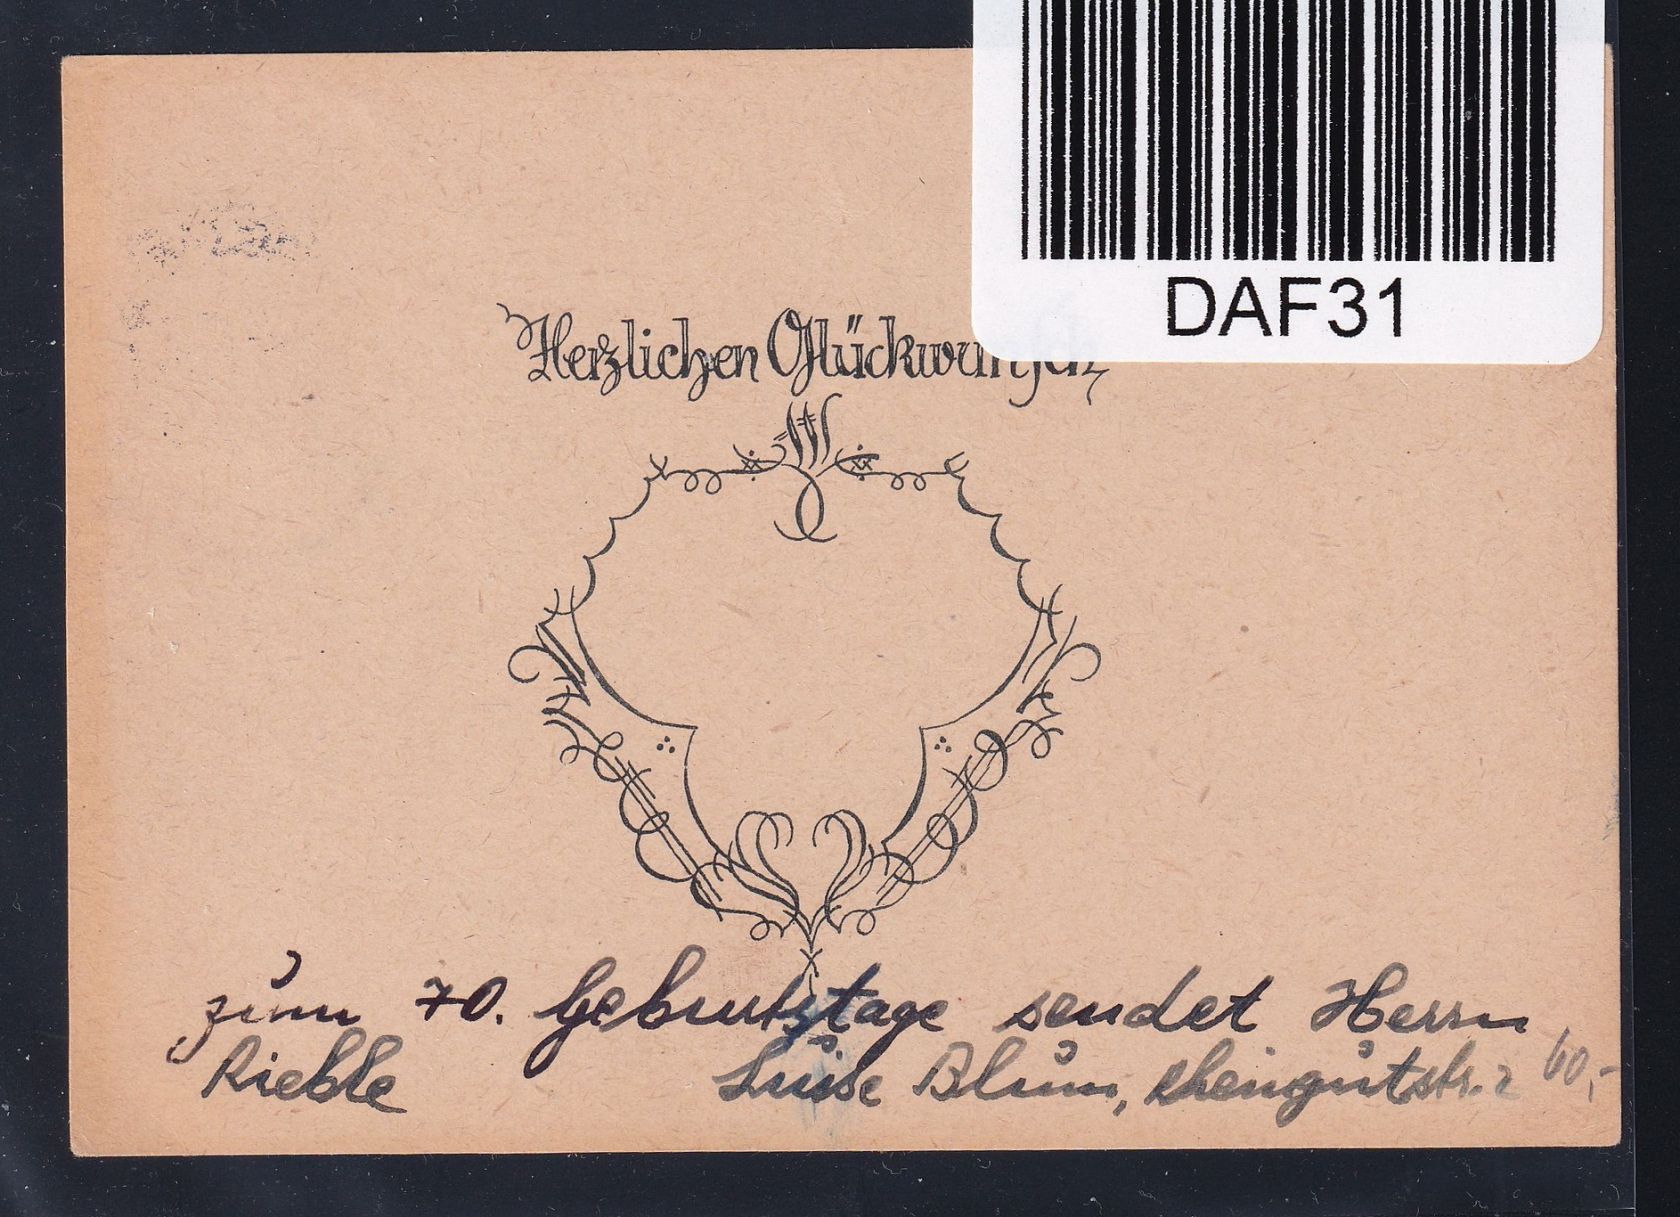 DAF31
Herzlichen Glückwunsch
zum 70. Geburtstage sendet Herrn
Rieble Luise Blum, Rheingutstr. 2 60,-